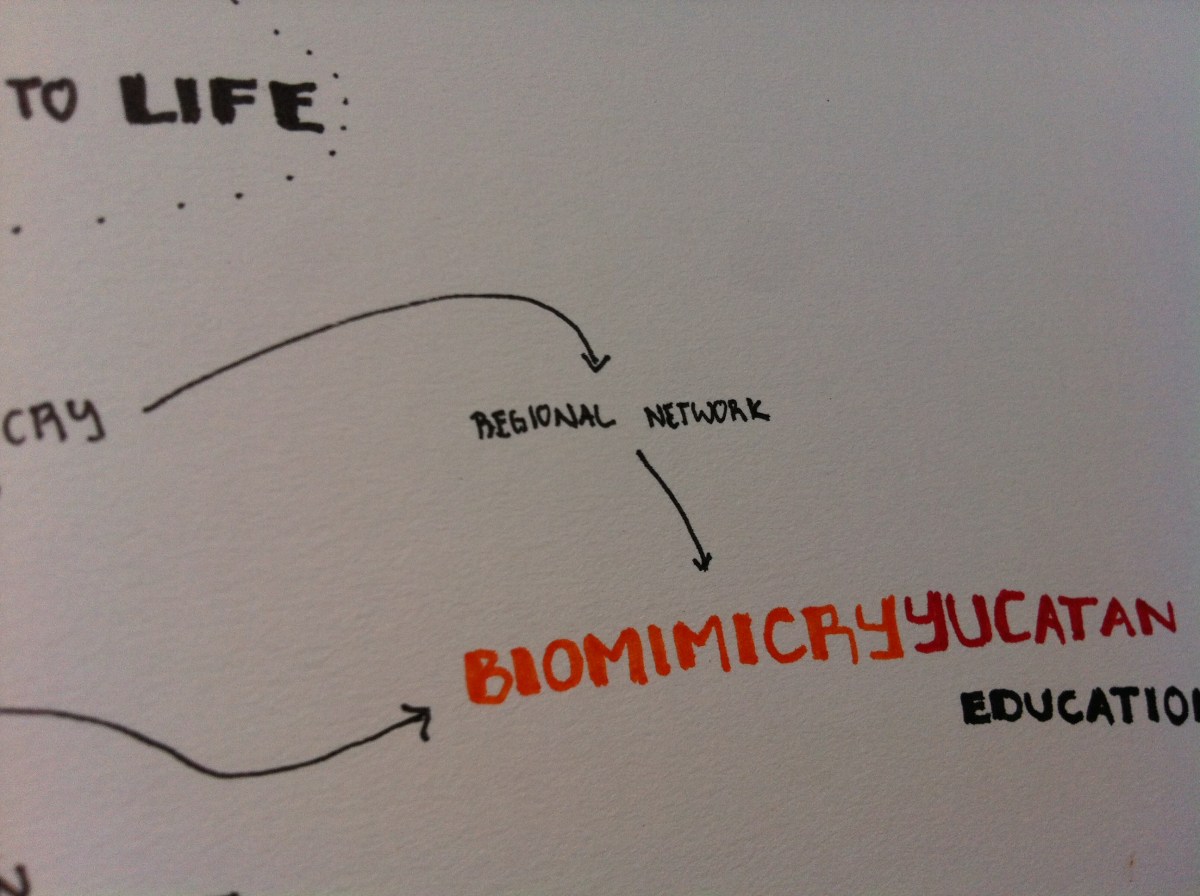 TO LIFE
CRY
REGIONAL NETWORK
BIOMIMICRYYUCATAN
EDUCATIO